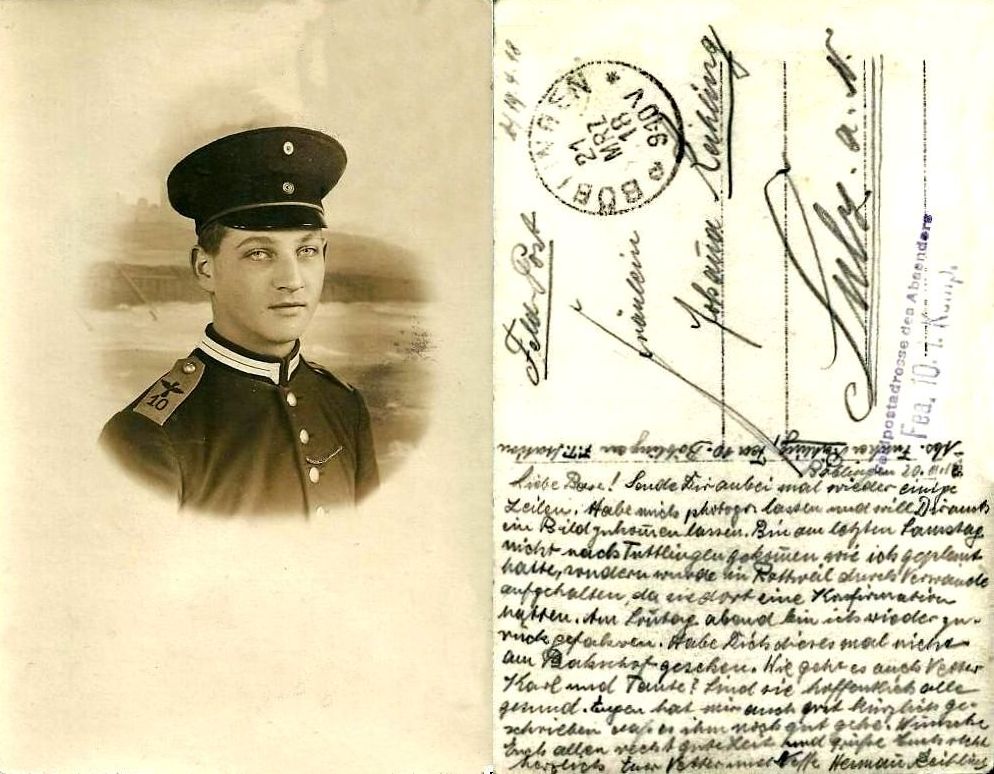 10
19.4.18
BÖBLINGEN
21
MRZ
18
9-10V
Feld-Post
Fräulein
Johanna Reihling
Sulz a. N.
Feldpostadresse des Absenders
Fea. 10. 1. Komp.
Abs. Funker Reihling, Fea 10. Böblingen
Böblingen 20. III. 18
Liebe Base! Sende Dir anbei mal wieder einige
Zeilen. Habe mich photogr. lassen und will Dir auch
ein Bild zukom̅en lassen. Bin am letzten Samstag
nicht nach Tuttlingen gekom̅en wie ich geplant
hatte, sondern wurde in Rottweil durch Verwandte
aufgehalten, da sie dort eine Konfirmation
hatten. Am Son̅tag abend bin ich wieder zu-
rück gefahren. Habe Dich dieses mal nicht
am Bahnhof gesehen. Wie geht es auch Vetter
Karl und Tante? Sind sie hoffentlich alle
gesund. Eugen hat mir auch erst kürzlich ge-
schrieben daß es ihm noch gut gehe. Wünsche
Euch allen recht gute Zeit und grüße Euch recht
herzlich Euer Vetter und Neffe Herman̅ Reihling